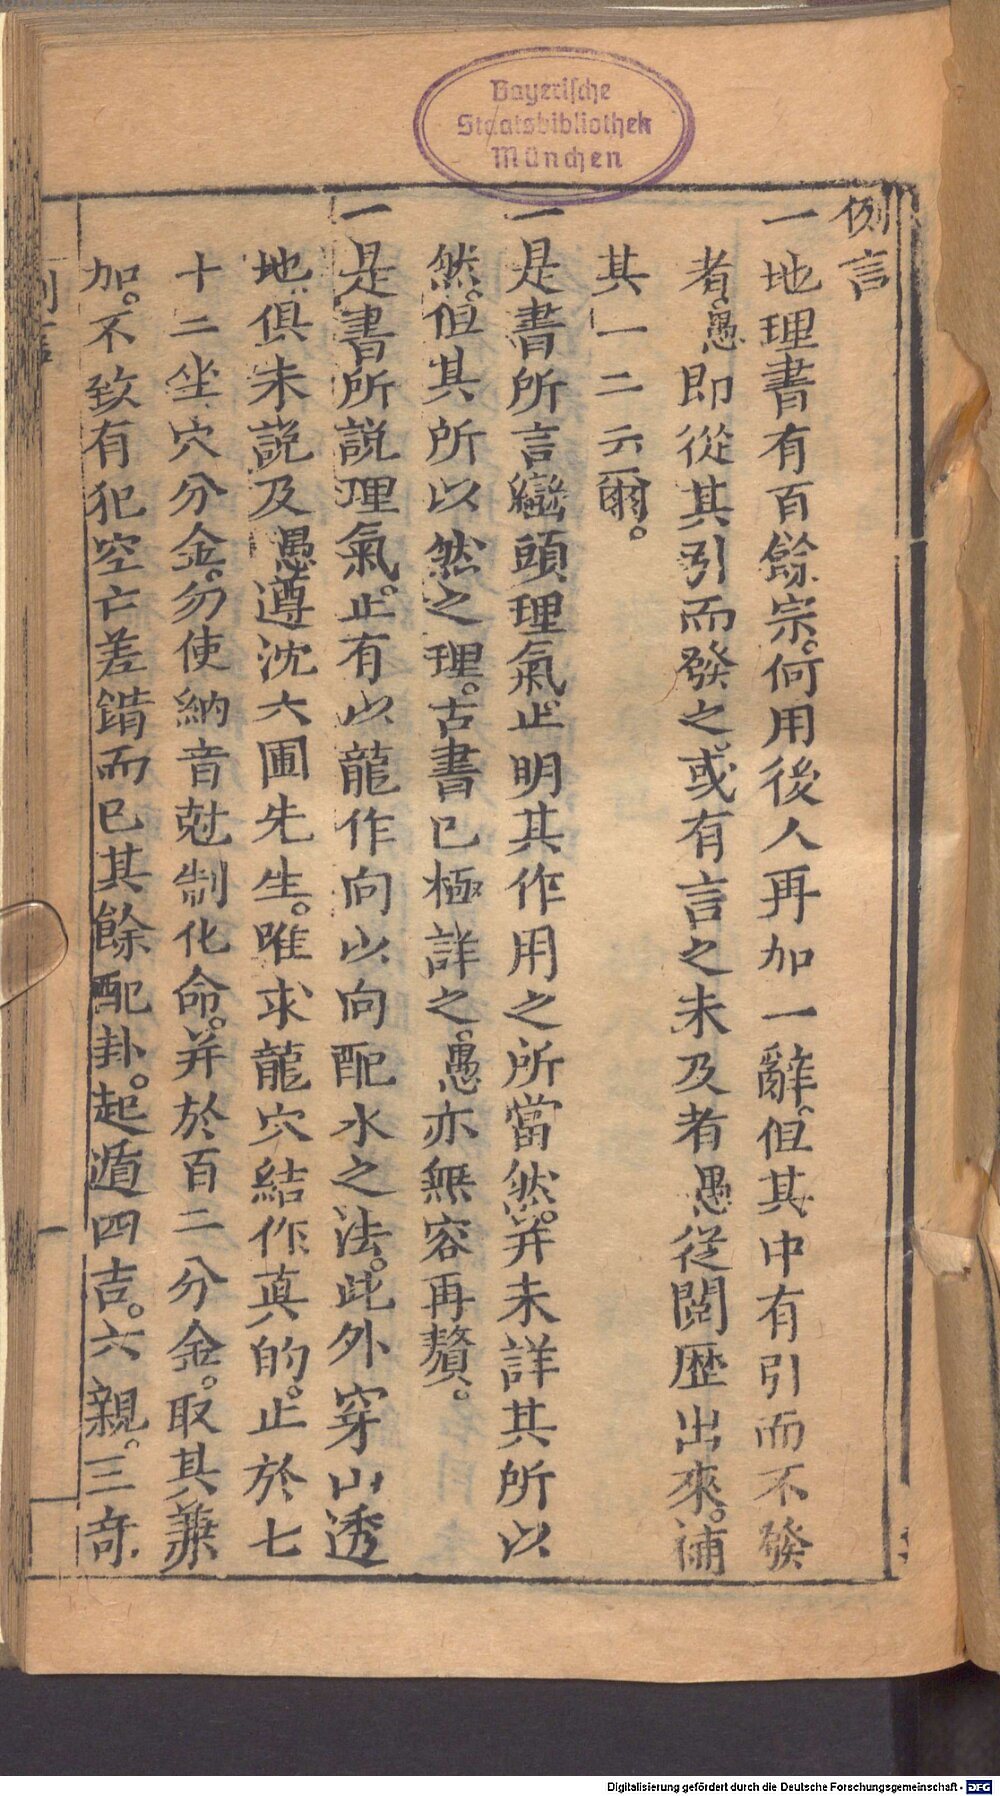 Bayerische
Staatsbibliothek
München
例言
一地理書有百餘宗。何用後人再加一辭。但其中有引而不發
者。愚即從其引而發之。或有言之未及者愚從閱歷出來。補
其一二云爾。
一是書所言巒頭理氣。止明其作用之所當然。并未詳其所以
然。但其所以然之理。古書已極詳之。愚亦無容再贅。
一是書所説理氣。止有以龍作向以向配水之法。此外穿山透
地。俱未説及愚遵沈六圃先生。唯求龍穴結作真的。止於七
十二坐穴分金。勿使納音尅制化命。并於百二分金。取其兼
加。不致有犯空亡差錯而已其餘配卦。起遁四吉。六親。三奇
一
Digitalisierung gefördert durch die Deutsche Forschungsgemeinschaft - DFG